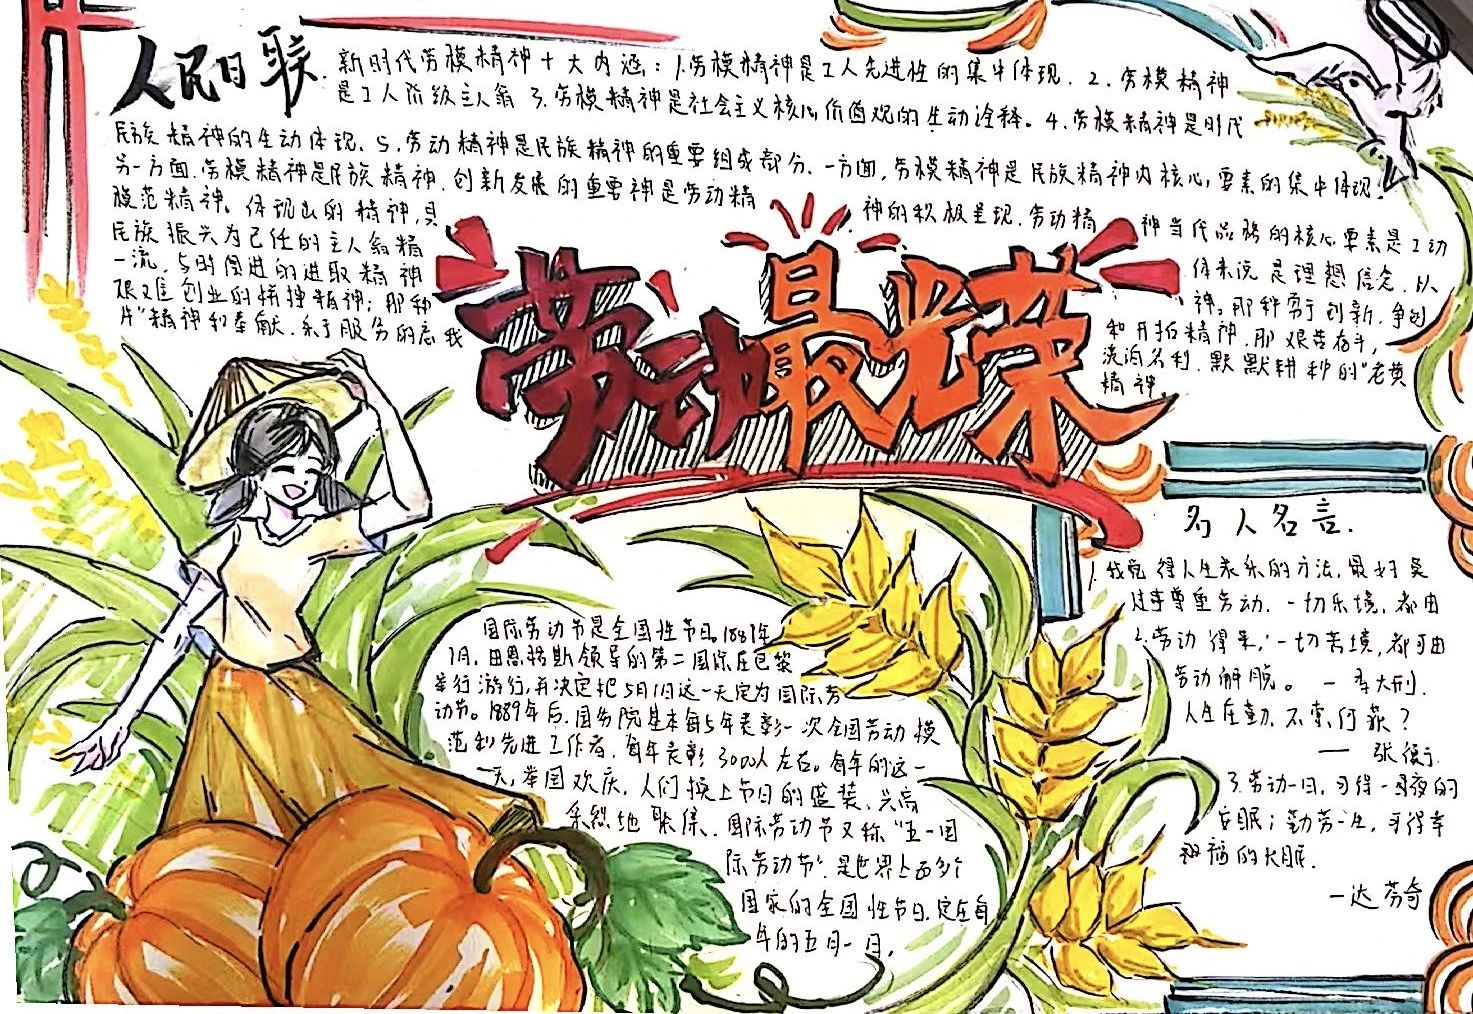 人民日联
新时代劳模精神十大内涵：1.劳模精神是工人先进性的集中体现．2．劳模精神
是工人阶级主人翁 3．劳模精神是社会主义核心价值观的生动诠释。4．劳模精神是时代
民族精神的生动体现．5．劳动精神是民族精神的重要组成部分．一方面，劳模精神是民族精神内核心，要素的集中体现；
另一方面．劳模精神是民族精神．创新发展的重要神是劳动精
神的积极呈现．劳动精
神当代品格的核心要素是工动
模范精神。体现出的精神，具
民族振兴为己任的主人翁精
一流，与时俱进的进取精神
艰难创业的拼搏精神；那种
片"精神和奉献．乐于服务的忘我
体来说是理想信念．以
神。那种勇于创新．争创
和开拓精神．那艰苦奋斗，
淡泊名利．默默耕种的"老黄
精神
劳动最光荣
国际劳动节是全国性节日。1889年
7月．由恩格斯领导的第二国际在巴黎
举行游行，并决定把5月1日这一天定为国际劳
动节。1889年后．国务院基本每5年表彰一次全国劳动模
范和先进工作者．每年表彰3000人左右。每年的这一
天，举国欢庆．人们换上节日的盛装．兴高
采烈地聚集．国际劳动节又称"五一国
际劳动节"．是世界上西多个
国家的全国性节日．定在每
年的五月一日．
名人名言．
1．我觉得人生求乐的方法，最好莫
过于尊重劳动．一切乐境，都由
2．劳动得来，一切苦境，都可由
劳动解脱。一李大钊．
人生在勤．不索何获？
一张衡
3．劳动一日，可得一日夜的
安眠；勤劳一生，可得幸
福的长眠．
一达芬奇